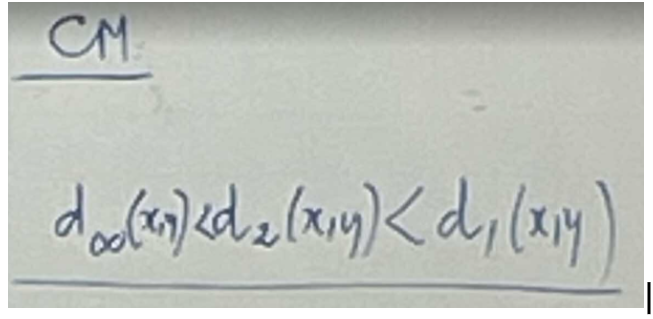 CM
d∞(x,y) < d₂(x,y) < d₁(x,y)